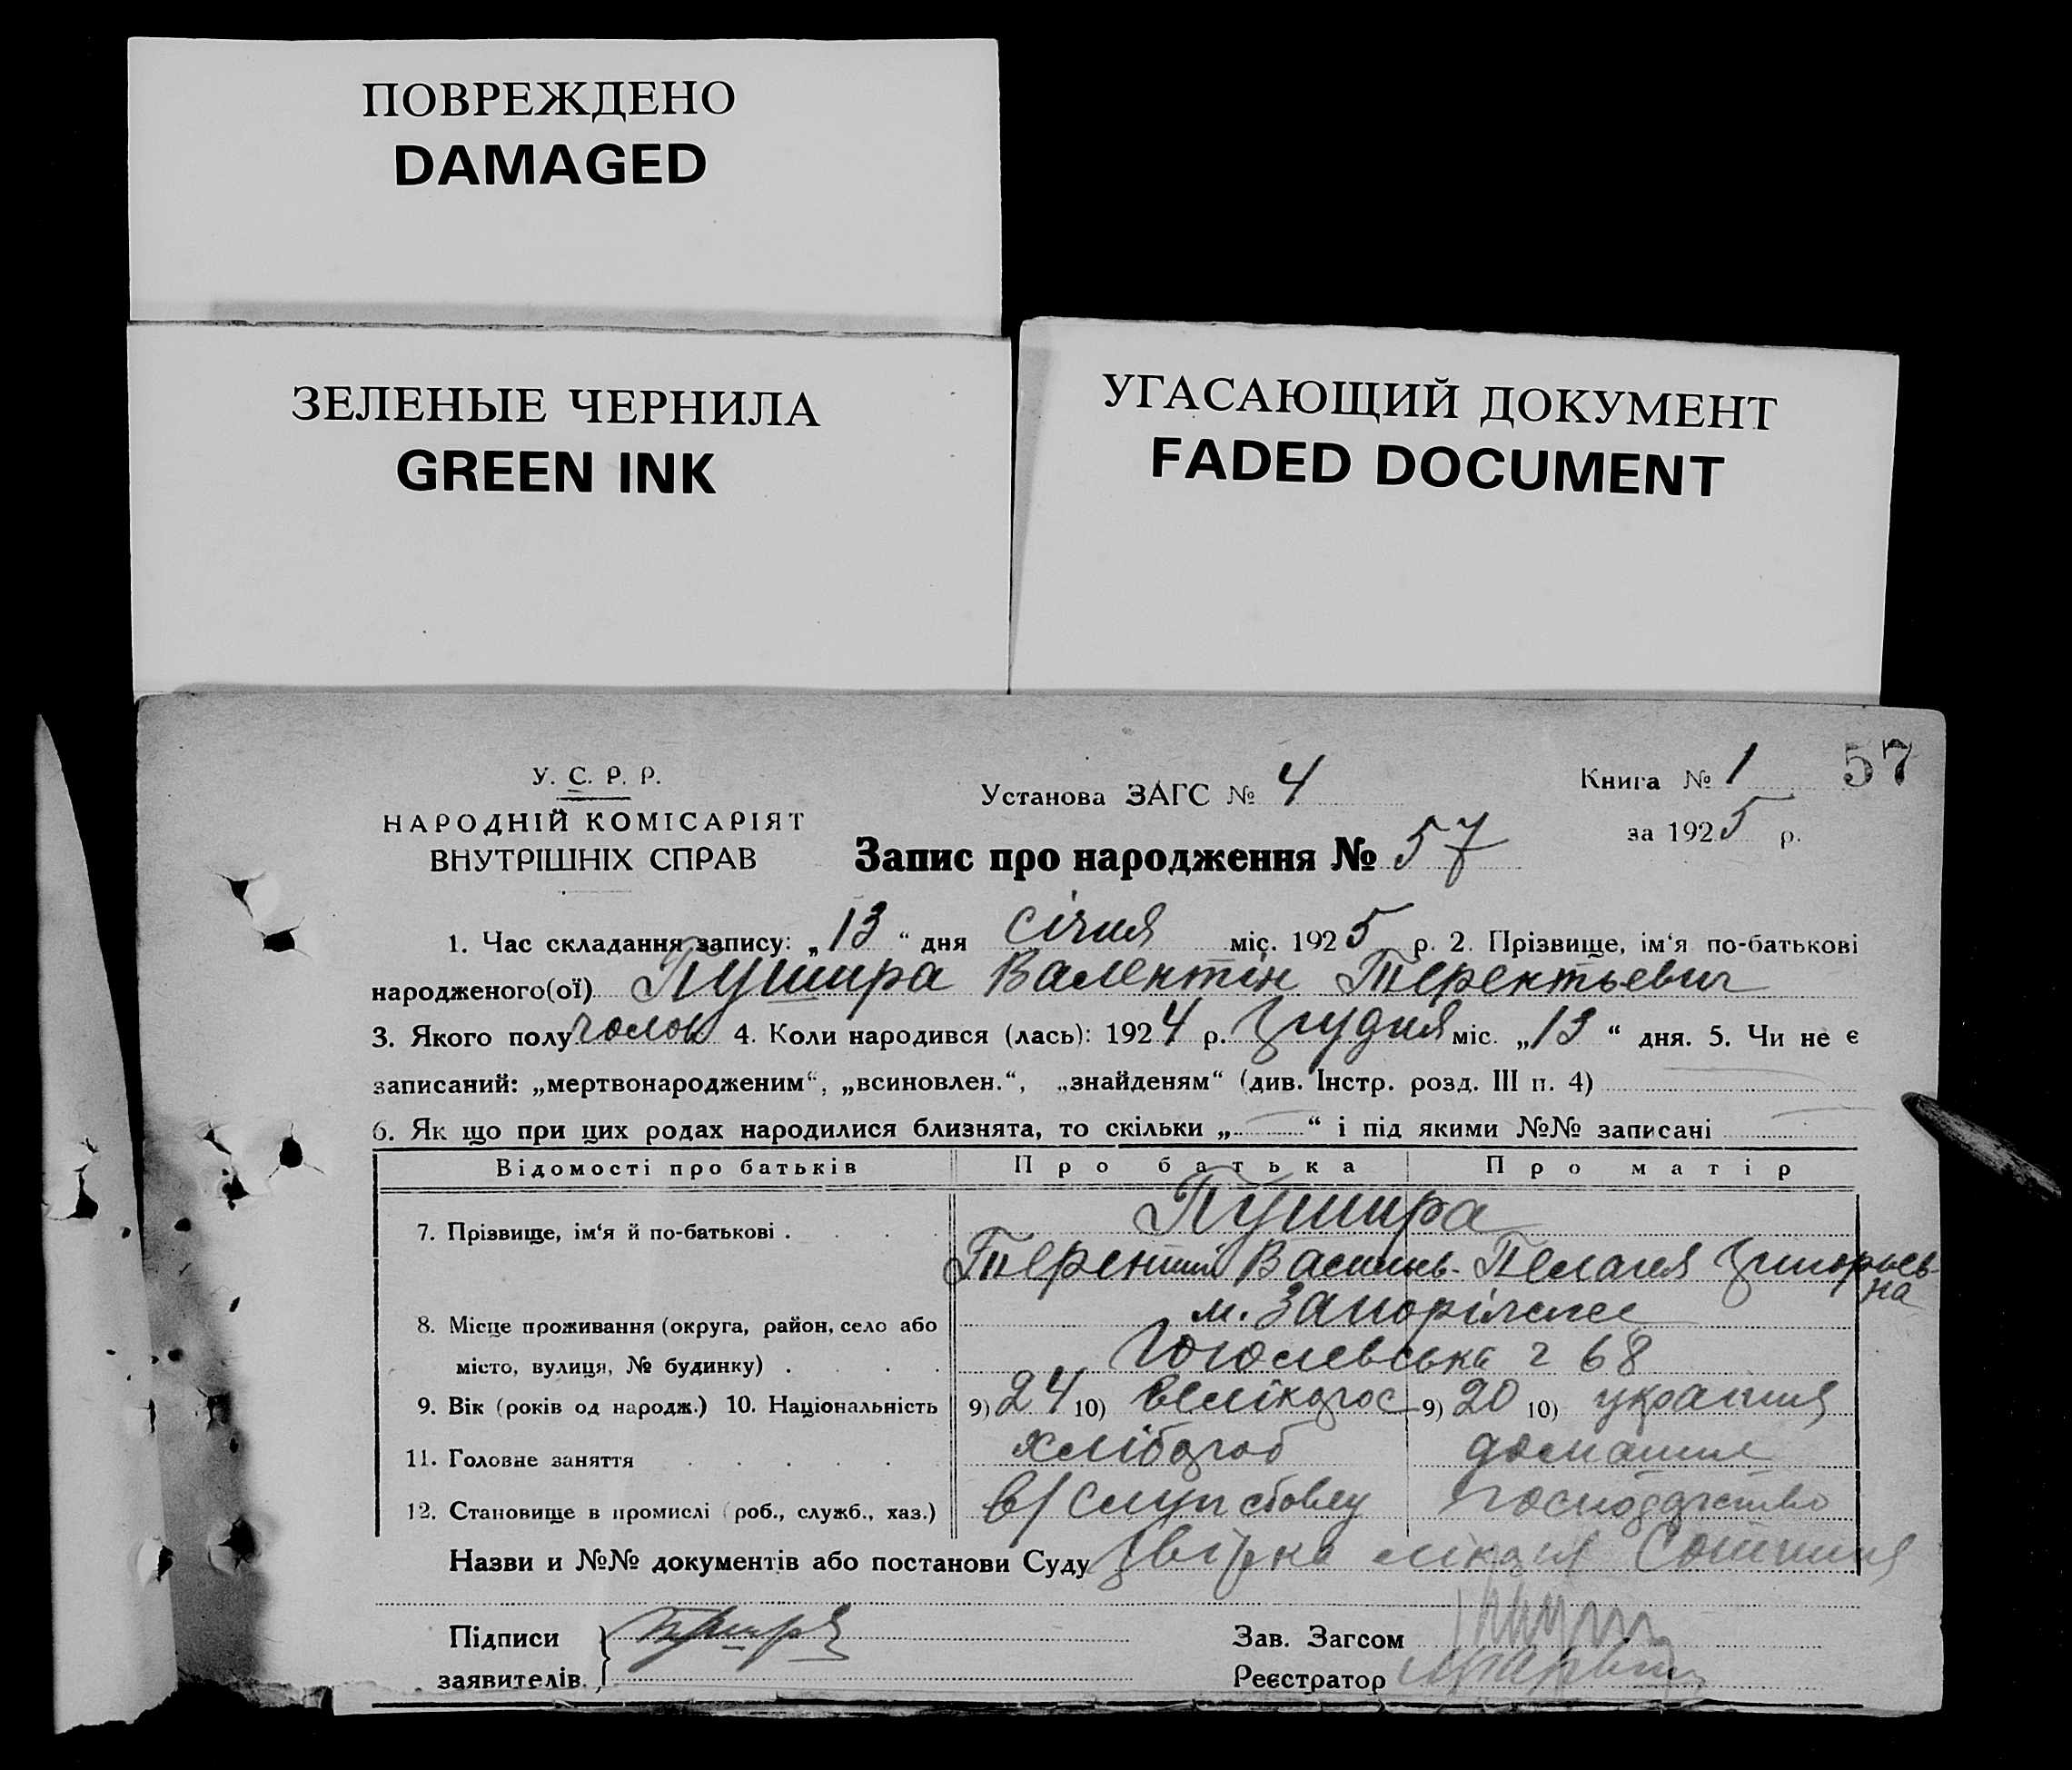 ПОВРЕЖДЕНО
DAMAGED
ЗЕЛЕНЫЕ ЧЕРНИЛА
GREEN INK
УГАСАЮЩИЙ ДОКУМЕНТ
FADED DOCUMENT
У. С. Р. Р.
НАРОДНІЙ КОМІСАРІЯТ
ВНУТРІШНІХ СПРАВ
Установа ЗАГС № 4
Книга № 1 57
за 1925 р.
Запис про народження № 57
1. Час складання запису: „13“ дня січня міс. 1925 р. 2. Прізвище, ім‘я по-батькові
народженого(ої) Пушира Валентін Терентьевич
3. Якого полу чолов 4. Коли народився (лась): 1924 р. Грудня міс. „13“ дня. 5. Чи не є
записаний: „мертвонародженим“, „всиновлен.“, „знайденям“ (див. Інстр. розд. III п. 4)
6. Як що при цих родах народилися близнята, то скільки „ “ і під якими №№ записані
Відомості про батьків Про батька Про матір
7. Прізвище, ім‘я й по-батькові . . . . Пушира
Терентий Василь- Пелагея Григорьев-
на
8. Місце проживання (округа, район, село або м. Запоріжже
місто, вулиця, № будинку) . . . . Гоголевська 68
9. Вік (років од народж.) 10. Національність 9) 24 10) велікорос 9) 20 10) україння
11. Головне заняття . . . . . хлібороб домашне
12. Становище в промислі (роб., служб., хаз.) господарство
Назви и №№ документів або постанови Суду лікаря
Підписи
заявителів. Пушира
Зав. Загсом
Реєстратор